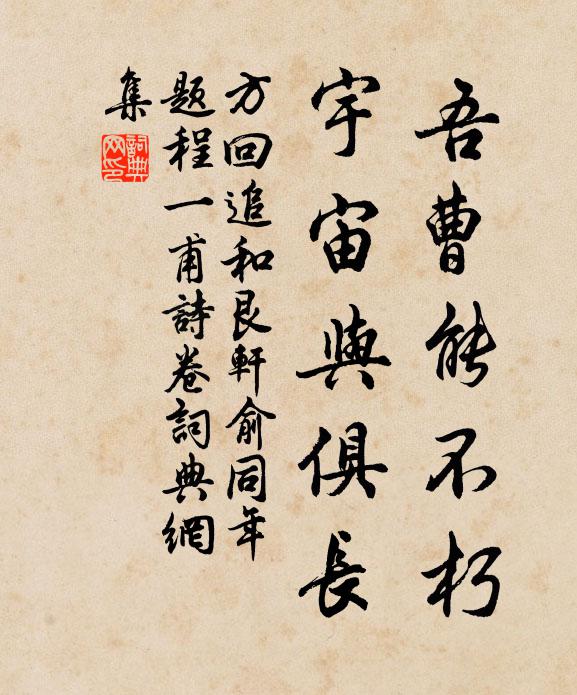 吾曹能不朽
宇宙與俱長
方回追和艮軒俞同年
題程一甫詩卷詞典網
集
詞典網印